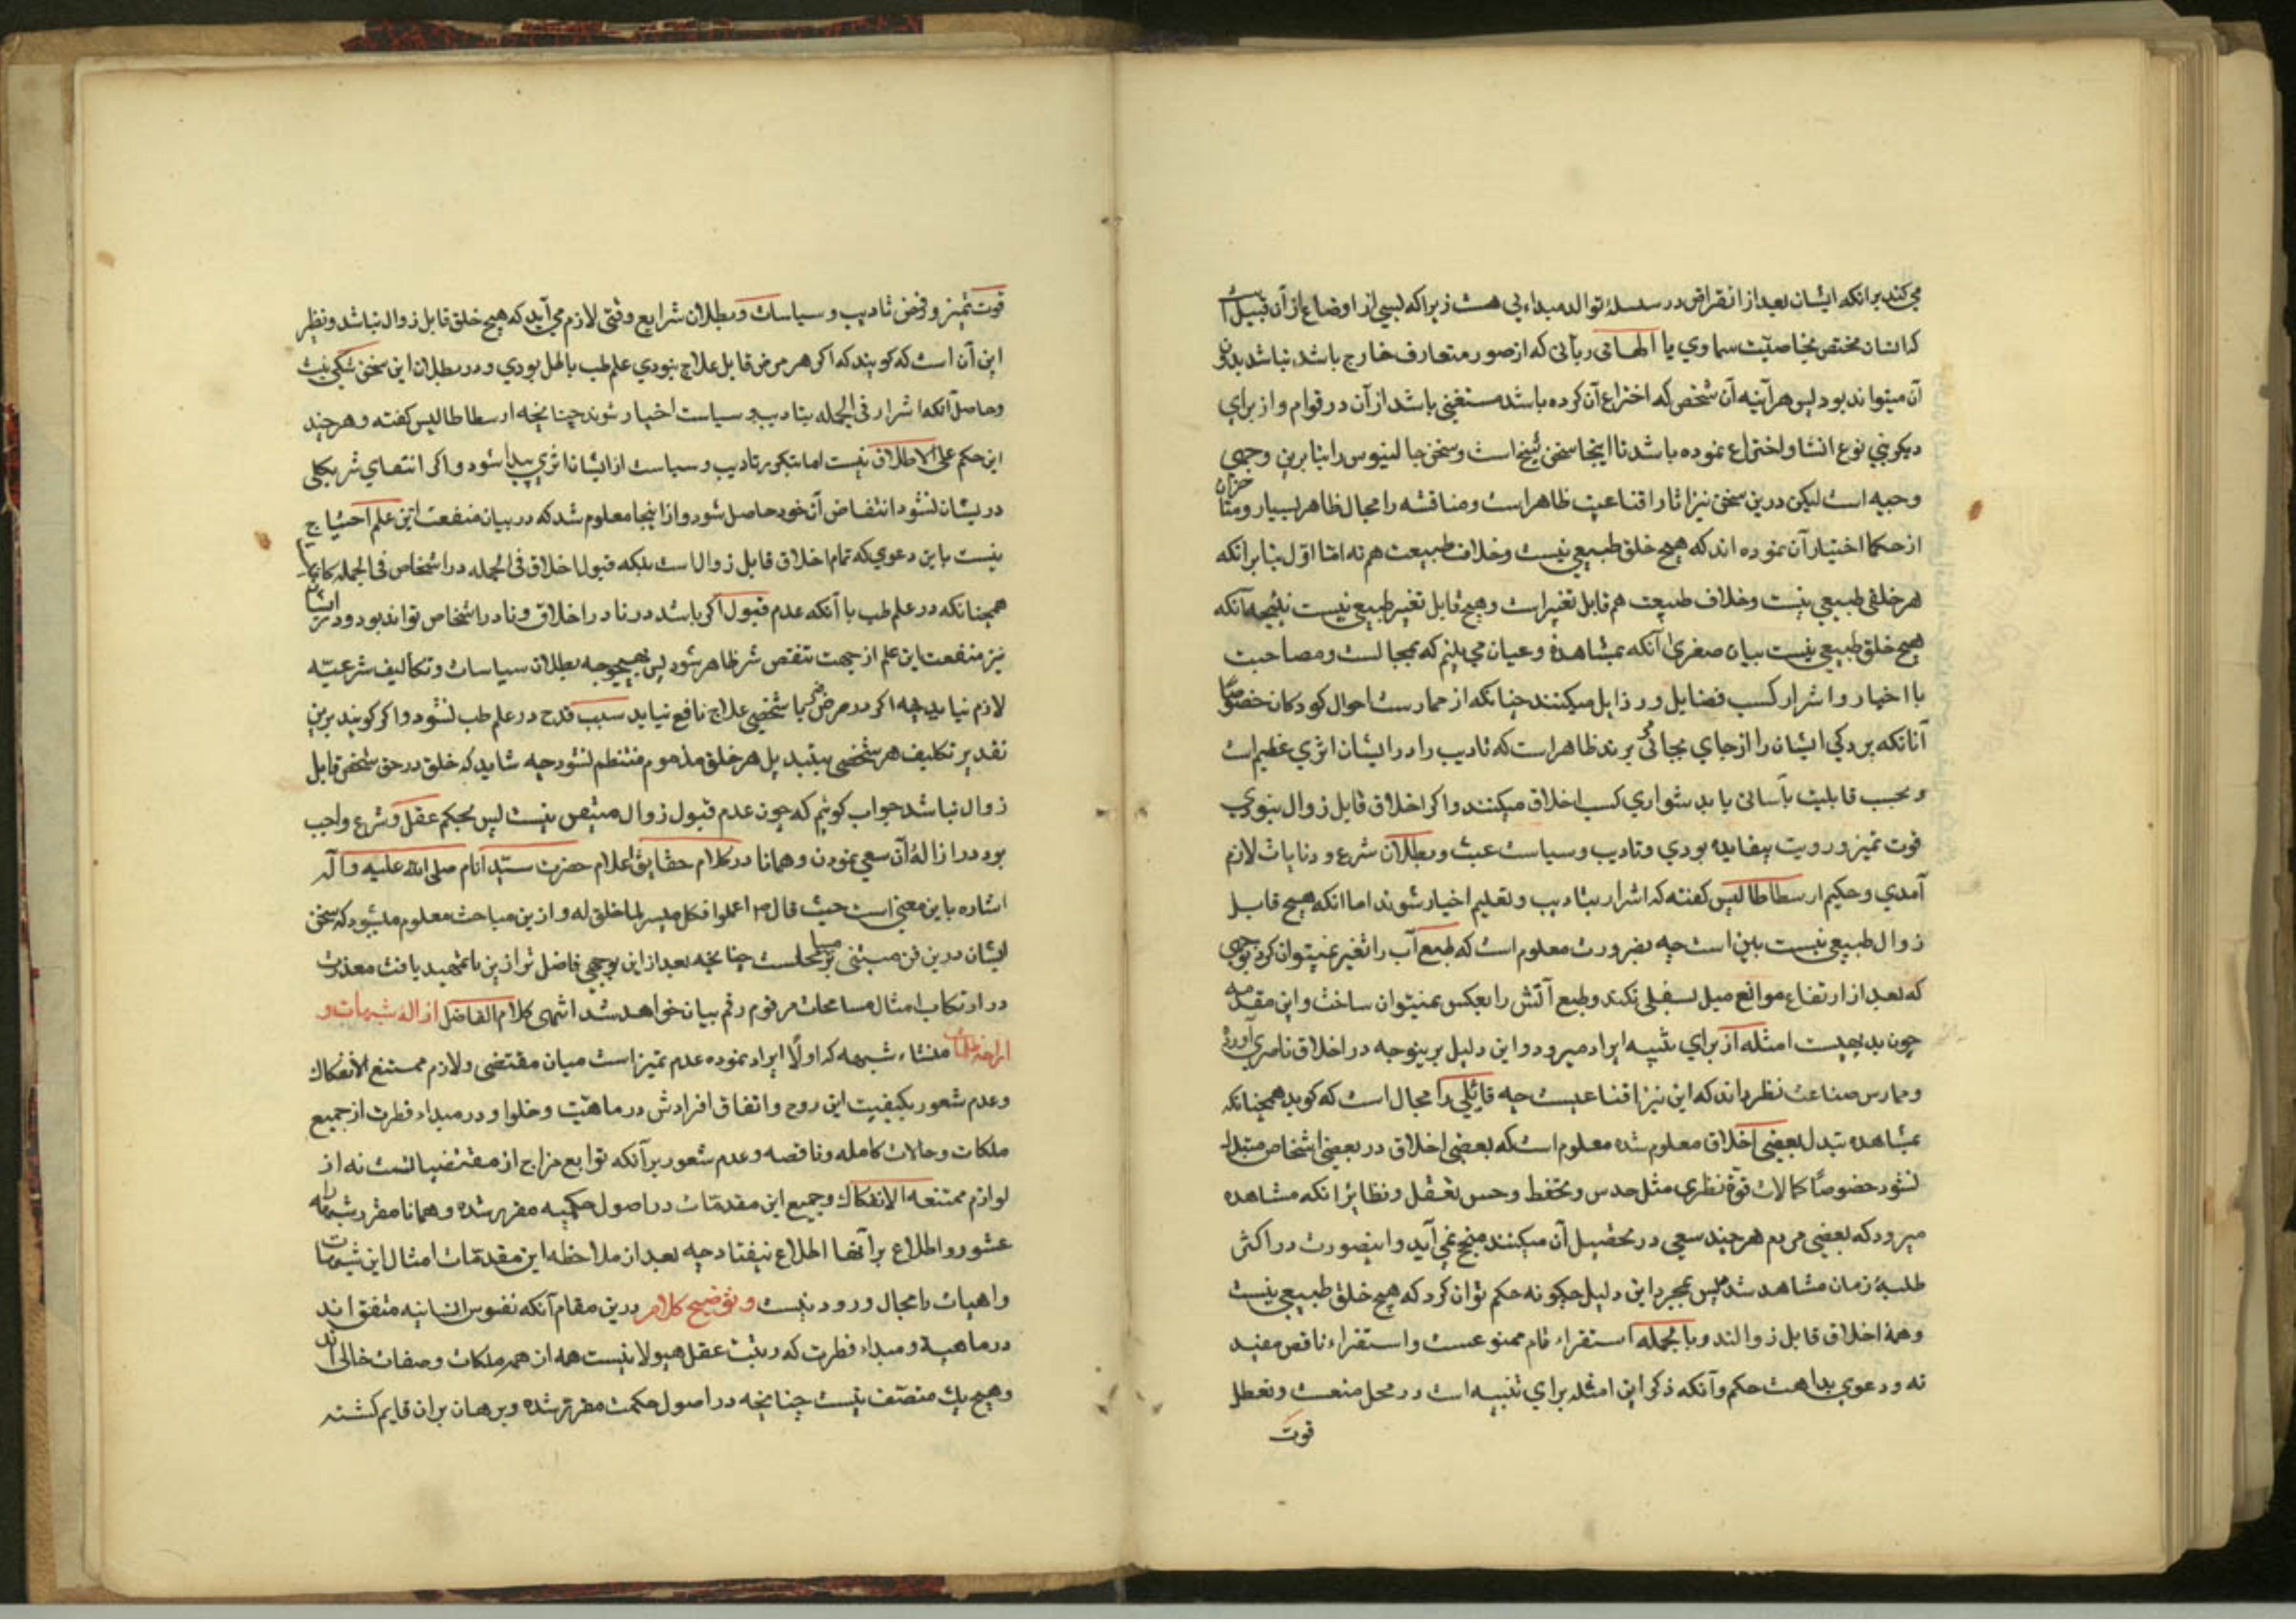 می کند برانکه ایشان بعد از انقراض در سلسلهٔ توالد مبداء بی هست زیرا که بسی از اوضاع از آن قبیل است
که انسان مختص بخاصیت سماوی یا الهامی ربانی که از صور متعارف خارج باشد نباشد بدون
آن میتواند بود پس هر آینه آن شخص که اختراع آن کرده باشد مستغنی باشد از آن در قوام و از برای
دیکر بنی نوع انشا و اختراع نموده باشد تا اینجا سخن شیخ است و سخن جالینوس را بنابرین وجهی
وجیه است لیکن درین سخن نیز اثار اقناعیت ظاهر است و مناقشه را مجال ظاهر بسیار و متاخران
از حکما اختیار آن نموده اند که هیچ خلق طبیعی نیست و خلاف طبیعت هم نه اما اول بنابرانکه
هر خلقی طبیعی نیست و خلاف طبیعت هم قابل تغیر است و هیچ قابل تغیر طبیعی نیست نتیجه آنکه
هیچ خلق طبیعی نیست بیان صغری آنکه بمشاهدهٔ و عیان می بینیم که بمجالست و مصاحبت
با اخیار و اشرار کسب فضایل و رذایل میکنند چنانکه از ممارست احوال کودکان خصوصا
آنانکه بردکی ایشان را از جای بجائی برند ظاهر است که تادیب را در ایشان اثری عظیم است
و بحسب قابلیت بآسانی یا بدشواری کسب اخلاق میکنند و اکر اخلاق قابل زوال نبودی
قوت تمیز و رویت بیفایده بودی و تادیب و سیاست عبث و بطلان شرع و دیانات لازم
آمدی و حکیم ارسطاطالیس کفته که اشرار بتادیب و تعلیم اخیار شوند اما انکه هیچ قابل
زوال طبیعی نیست بین است چه بضرورت معلوم است که طبع آب را تغیر نمیتوان کرد بوجهی
که بعد از ارتفاع موانع میل بسفلی نکند و طبع آتش را بعکس نمیتوان ساخت و این مقدمه
چون بدیهیست امثله از برای تنبیه ایراد میرود و این دلیل برینوجه در اخلاق ناصری آورده
و ممارس صناعت نظر داند که این نیز اقناعیست چه قائلی را مجال است که کوید همچنانکه
بمشاهده تبدل بعضی اخلاق معلوم شده معلوم است که بعضی اخلاق در بعضی اشخاص متبدل
نشود خصوصاً کمالات قوة نظری مثل حدس و تحفظ و حسن تعقل و نظایر انکه مشاهده
میرود که بعضی مردم هر چند سعی در تحصیل آن میکنند منجح نمی آید و اینصورت در اکثر
طلبهٔ زمان مشاهد شد پس بمجرد این دلیل چکونه حکم توان کرد که هیچ خلق طبیعی نیست
و همهٔ اخلاق قابل زوالند و بالجمله استقراء تام ممنوعست و استقراء ناقص مفید
نه و دعوی بداهت حکم و آنکه ذکر این امثله برای تنبیه است در محل منعست و تعطل
قوت
قوت تمیز و رفض تادیب و سیاسات و بطلان شرایع وقتی لازم می آید که هیچ خلق قابل زوال نباشد و نظیر
این آن است که کویند که اکر هر مرض قابل علاج نبودی علم طب باطل بودی و در بطلان این سخن شکی نیست
و حاصل آنکه اشرار فی الجمله بتادیب و سیاست اخیار شوند چنانچه ارسطاطالیس کفته و هر چند
این حکم علی الاطلاق نیست اما بتکرر تادیب و سیاست از ایشان اثری پیدا شود و اکر انتفای شر بکلی
در یشان نشود انتقاص آن خود حاصل شود و از اینجا معلوم شد که در بیان منفعت این علم احتیاج
نیست باین دعوی که تمام اخلاق قابل زوال است بلکه قبول اخلاق فی الجمله در اشخاص فی الجمله کافیست
همچنانکه در علم طب با آنکه عدم قبول اکر باشد در نادر اخلاق و نادر اشخاص تواند بود و در ایشان
نیز منفعت این علم از جهت تنقص شر ظاهر شود پس بهیچوجه بطلان سیاسات و تکالیف شرعیه
لازم نیاید چه اکر در مرض یا شخصی علاج نافع نیاید سبب قدح در علم طب نشود و اکر کویند برین
تقدیر تکلیف هر شخصی بتبدیل هر خلق مذموم منتظم نشود چه شاید که خلق در حق شخص قابل
زوال نباشد جواب کوئیم که چون عدم قبول زوال متیقن نیست پس بحکم عقل و شرع واجب
بود در ازالهٔ آن سعی نمودن و همانا در کلام حقایق اعلام حضرت سید انام صلی الله علیه و آله
اشاره باین معنی است حیث قال اعملوا فکل میسر لما خلق له و ازین مباحث معلوم میشود که سخن
ایشان درین فن مبتنی بر مساهلست چنانچه بعد از این بوجهی فاضل تر ازین با تمهید یافت معذرت
در ارتکاب امثال مسامحات مرقوم رقم بیان خواهد شد انتهی کلام الفاضل ازالهٔ شبهات و
ازاحهٔ ظلمات منشاء شبهه که اولاً ایراد نموده عدم تمیز است میان مقتضی و لازم ممتنع الانفکاک
و عدم شعور بکیفیت این روح و اتفاق افرادش در ماهیت و خلو او در مبداء فطرت از جمیع
ملکات و حالات کامله و ناقصه و عدم شعور بر آنکه توابع مزاج از مقتضیاتست نه از
لوازم ممتنعه الانفکاک و جمیع این مقدمات در اصول حکمیه مقرر شده و همانا مقرر شبهه را
عثور و اطلاع بر آنها اطلاع نیفتاد چه بعد از ملاحظه این مقدمات امثال این شبهات
واهیات را مجال ورود نیست و توضیح کلام درین مقام آنکه نفوس انسانیه متفق اند
در ماهیة و مبداء فطرت که رتبت عقل هیولانیست همه از همه ملکات و صفات خالی اند
و هیچ یک متصف نیست چنانچه در اصول حکمت مقرر شده و برهان بران قایم کشته